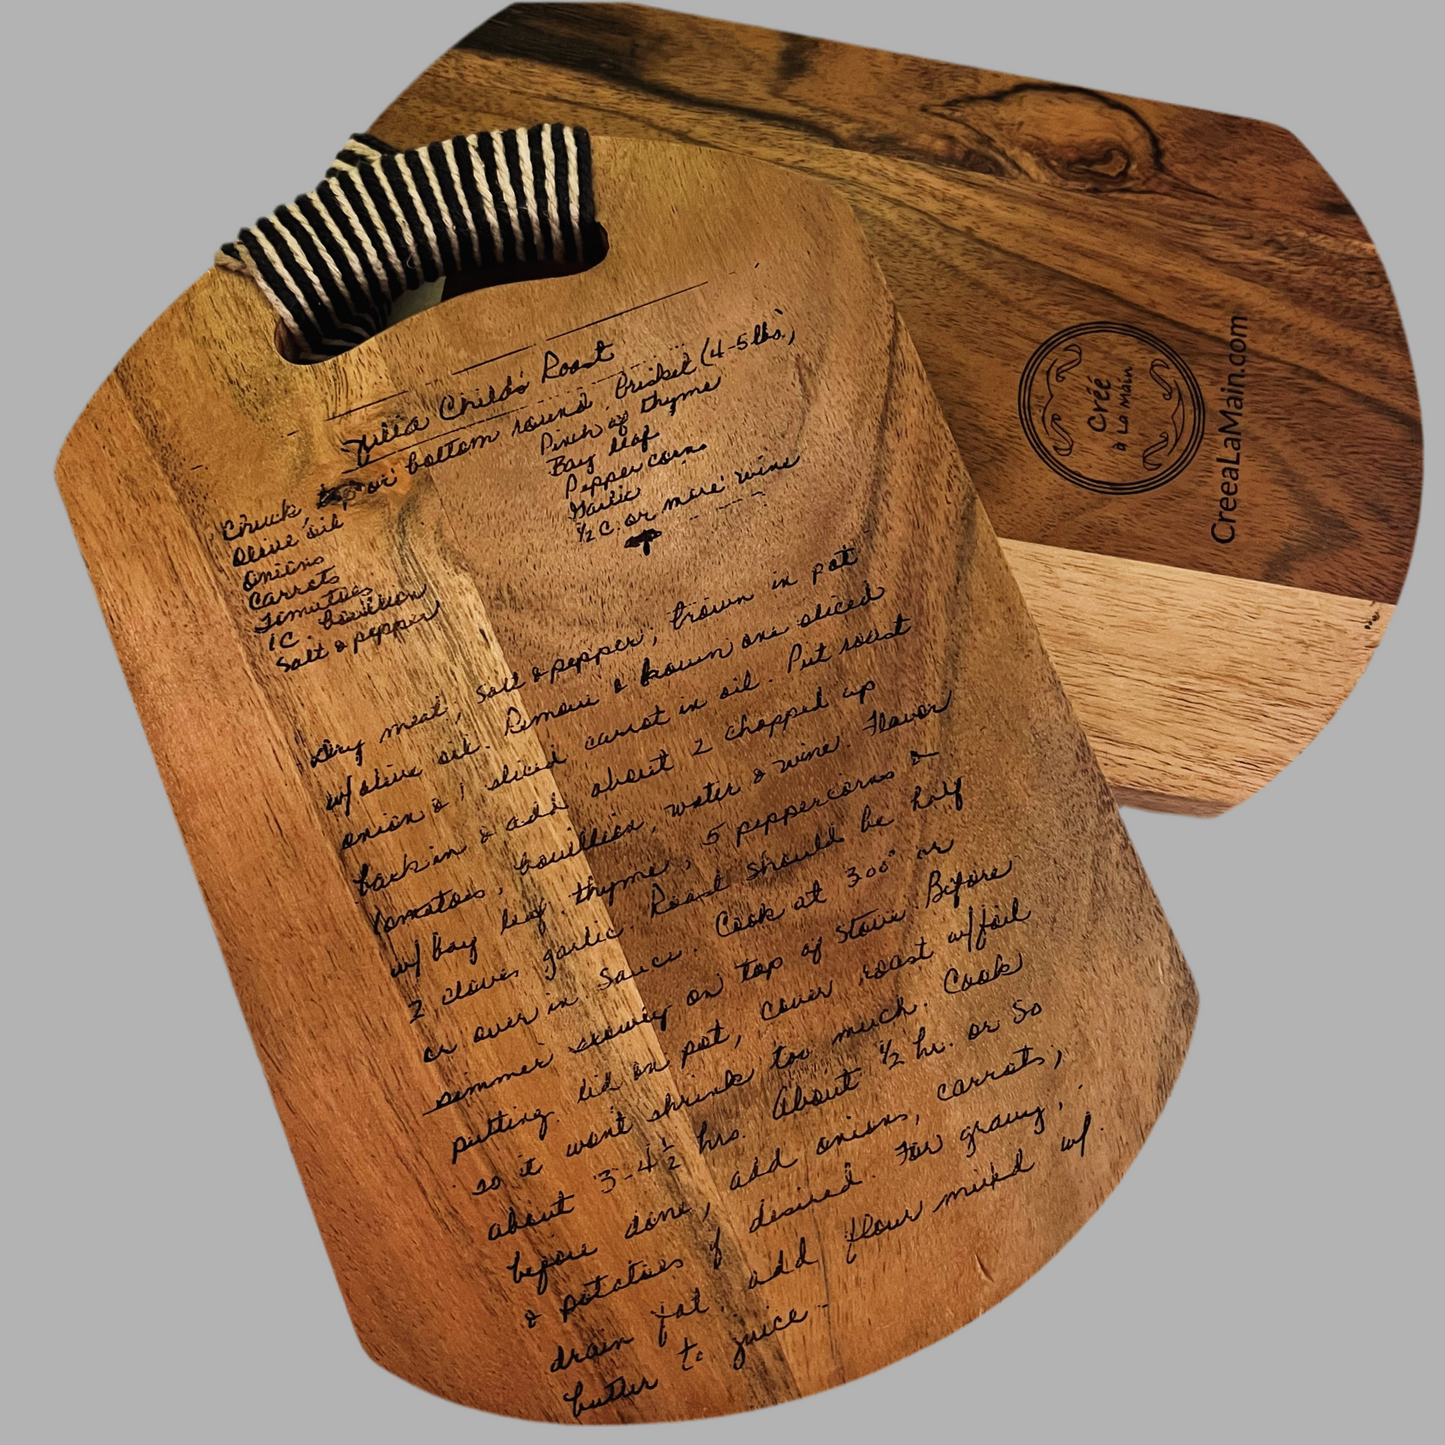 Julia Child's Roast
Chuck top or bottom round Brisket (4-5 lbs.)
Olive oil
Onions
Carrots
Tomatoes
1 C bouillon
Salt & pepper
Pinch of thyme
Bay leaf
Peppercorns
Garlic
½ C. or more wine
Dry meat, salt & pepper, brown in pot
w/ olive oil. Remove & brown one sliced
onion & 1 sliced carrot in oil. Put roast
back in & add about 2 chopped up
tomatoes, bouillion, water & wine. Flavor
w/ bay leaf thyme, 5 peppercorns &
2 cloves garlic. Roast should be half
or over in sauce. Cook at 300° or
simmer slowly on top of stove. Before
putting lid on pot, cover roast w/foil
so it won't shrink too much. Cook
about 3-4½ hrs. About ½ hr. or so
before done, add onions, carrots,
& potatoes if desired. For gravy,
drain fat, add flour mixed w/
butter to juice.
Créé
à La Main
CreeaLaMain.com